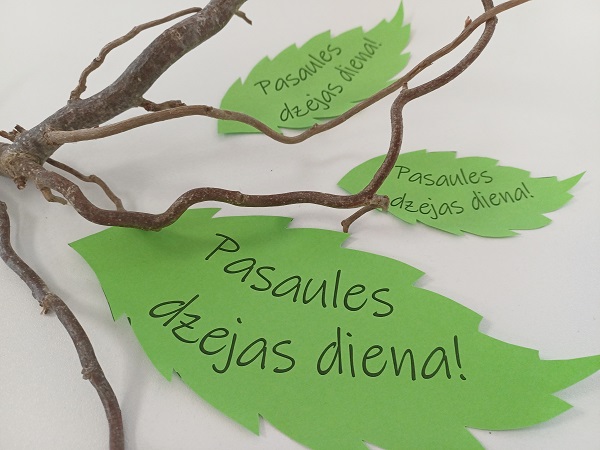 Pasaules
dzejas diena!
Pasaules
dzejas diena!
Pasaules
dzejas diena!